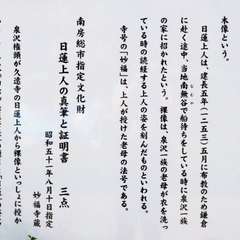 木像という。
日蓮上人は、建長五年(一二五三)五月に布教のため鎌倉
に赴く途中、当地南無谷で船待ちをしている時に泉沢一族
の家に招かれたという。裸像は、泉沢一族の老母が衣を洗っ
ている時の読経する上人の姿を刻んだものといわれる。
寺号の「妙福」は、上人が授けた老母の法号である。
南房総市指定文化財
日蓮上人の真筆と証明書 三点
昭和五十一年八月十日指定
妙福寺蔵
泉沢権頭が久遠寺の日蓮上人から裸像といっしょに授か